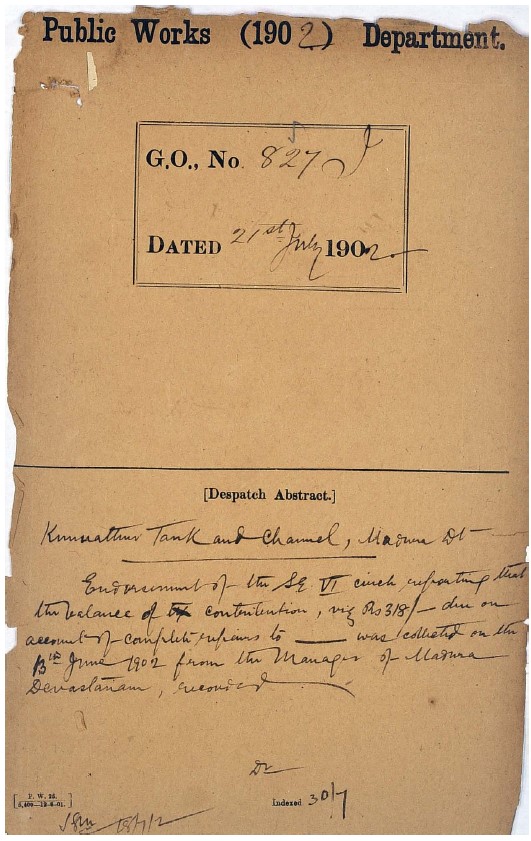 Public Works (1902) Department.
G.O., No 827 I
DATED 21st July 1902
[Despatch Abstract.]
Kunnathur Tank and Channel, Madura Dt
Endorsement of the SE VI circle reporting that
the balance of contribution, viz Rs 318/- due on
account of complete repairs to —— was collected on the
13th June 1902 from the Manager of Madura
Devastanam, recorded
P. W. 26.
Indexed 30/7
18/7/2